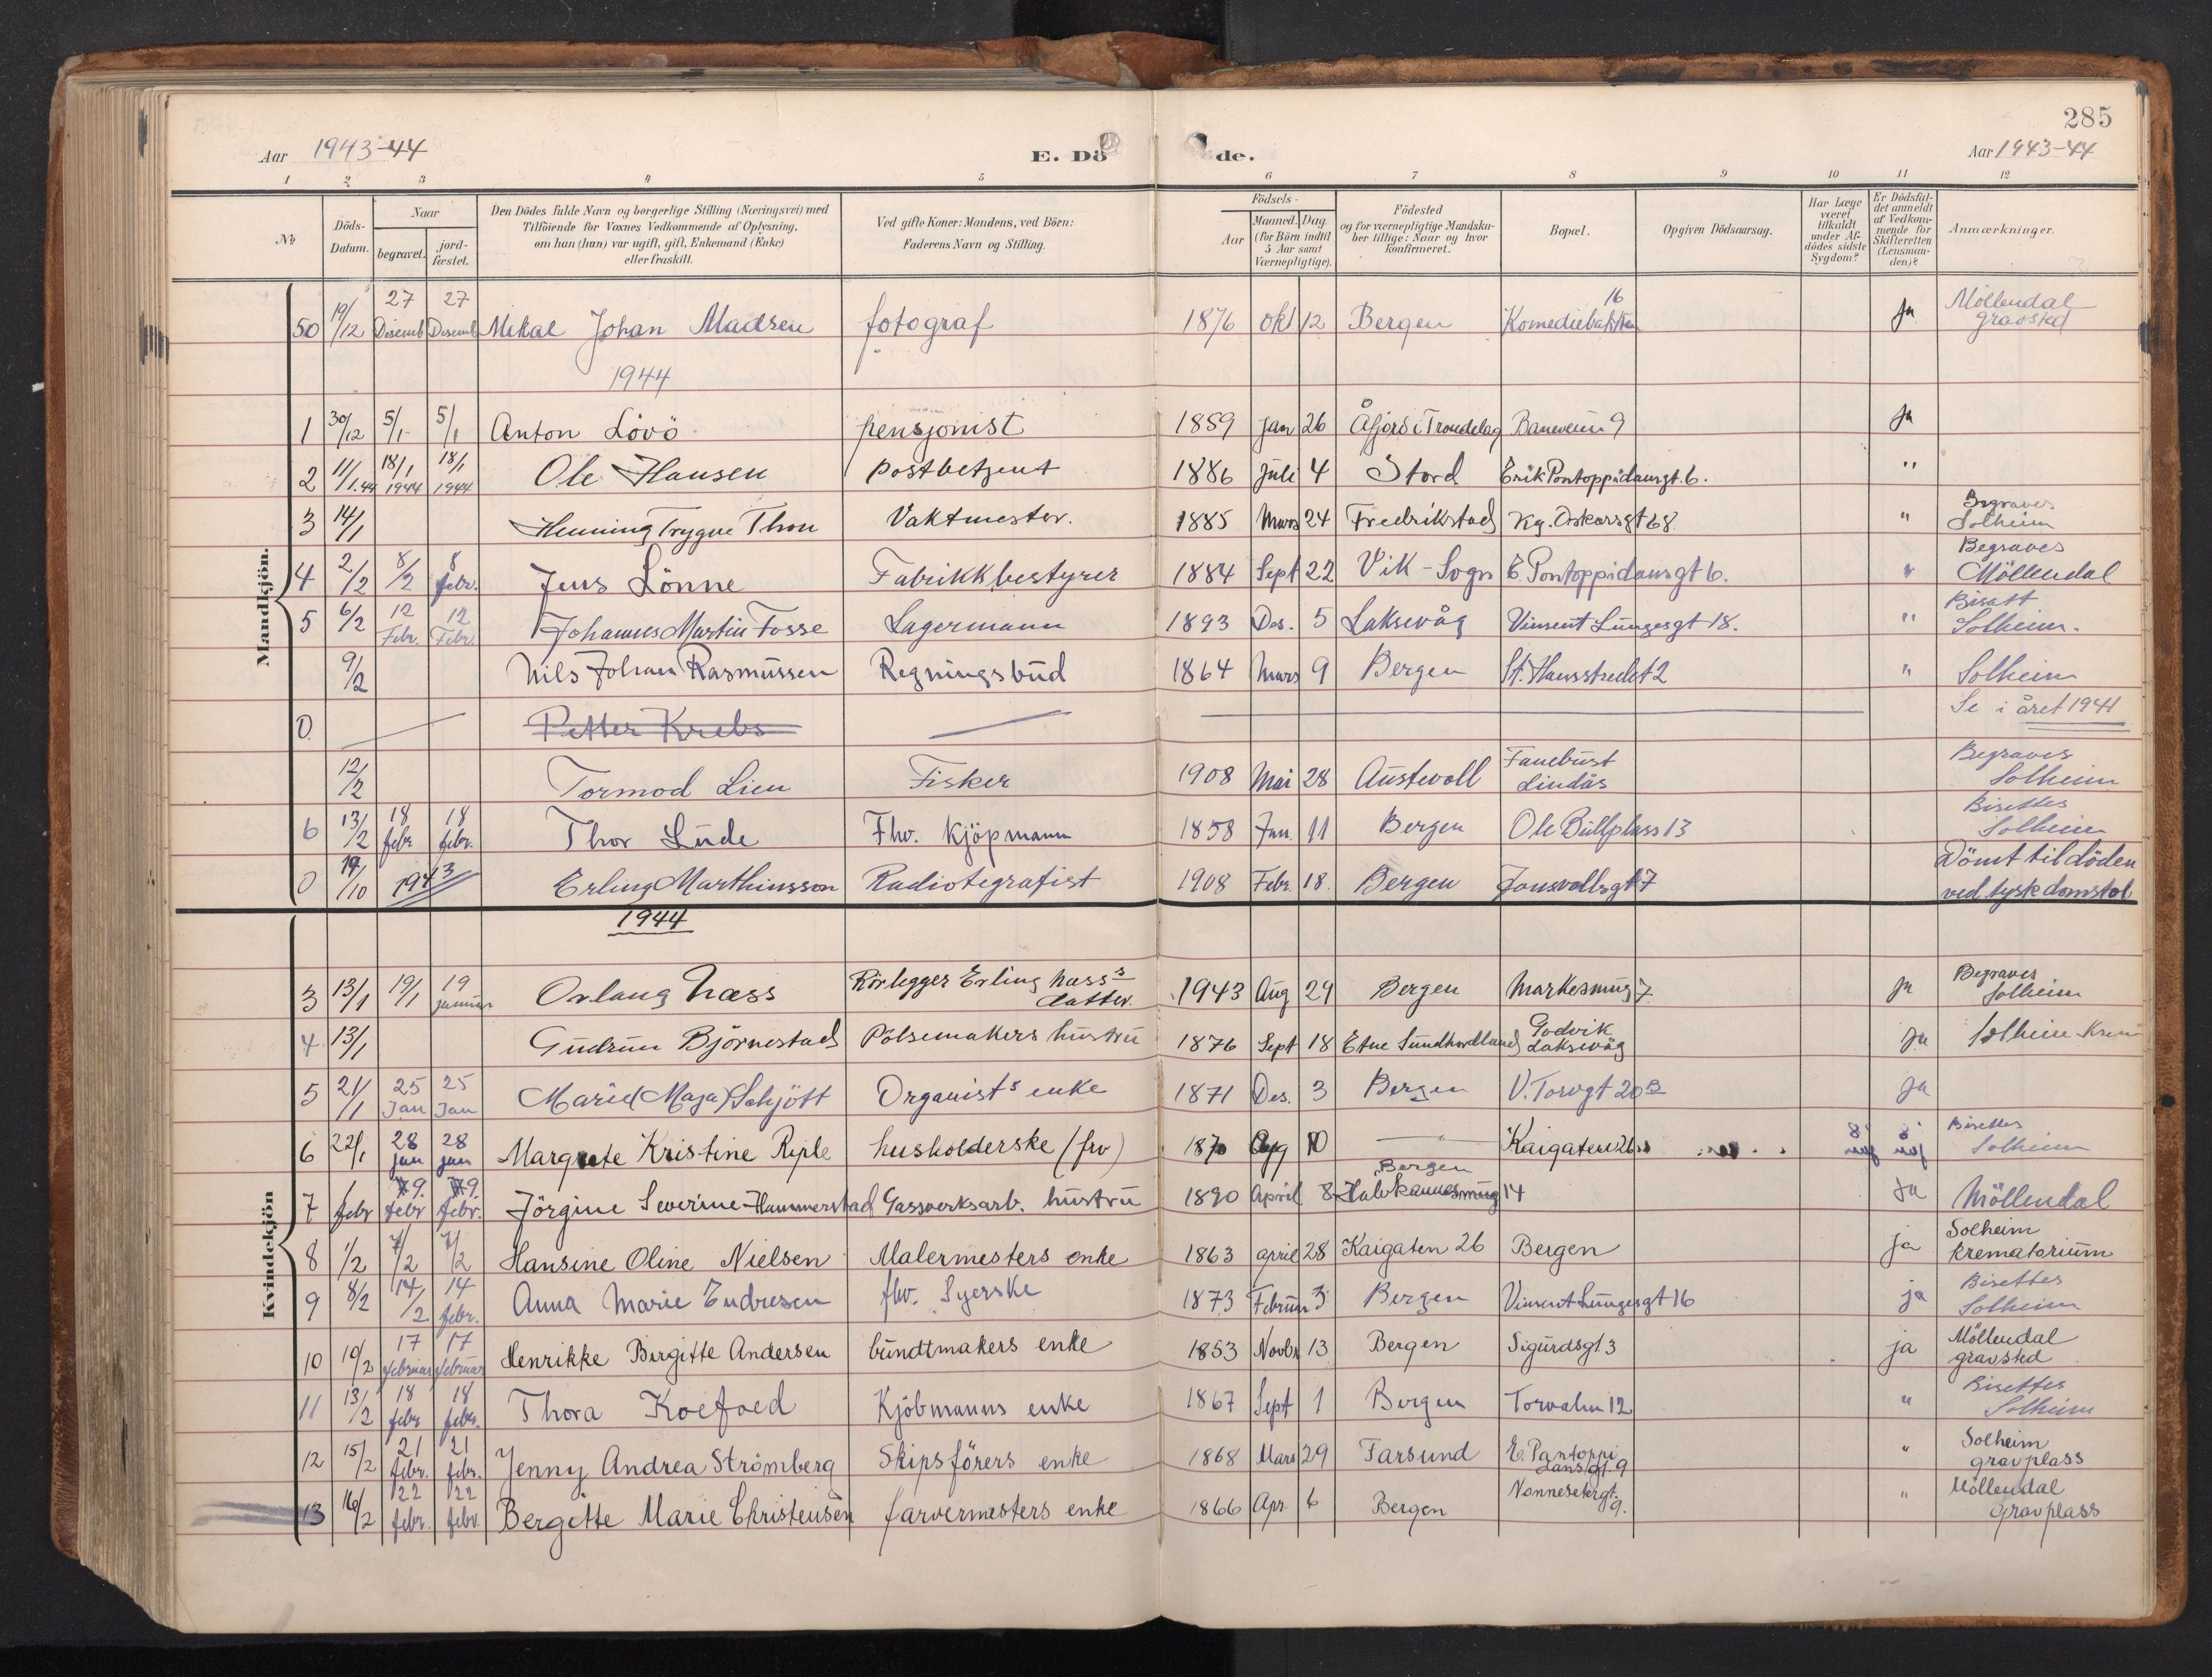 285
Aar 1943-44 E. Dö de. Aar 1943-44
1 2 3 4 5 6 7 8 9 10 11 12
No. Döds-Datum. Naar begravet. jord-fæstet. Den Dödes fulde Navn og borgerlige Stilling (Næringsvei) med Tilföiende for Voxnes Vedkommende af Oplysning, om han (hun) var ugift, gift, Enkemand (Enke) eller fraskilt. Ved gifte Koner: Mandens, ved Börn: Faderens Navn og Stilling. Födsels- Aar Maaned. Dag. (for Börn indtil 5 Aar samt Værnepligtige). Födested og for værnepligtige Mandskaber tillige: Naar og hvor konfirmeret. Bopæl. Opgiven Dödsaarsag. Har Læge været tilkaldt under Afdödes sidste Sygdom? Er Dödsfaldet anmeldt af Vedkommende for Skifteretten (Lensmanden)? Anmærkninger.
Mandkjön.
50 19/12 27 Desemb 27 Desemb Mikal Johan Madsen fotograf 1876 okt 12 Bergen Komediebakken 16 ja Möllendal gravsted
1944
1 30/12 5/1 5/1 Anton Lövö pensjonist 1859 jan 26 Åfjord i Trondelag Baneveien 9 ja
2 11/1.44 18/1 1944 18/1 1944 Ole Hansen Postbetjent 1886 juli 4 Stord Erik Pontoppidansgt. 6. "
3 14/1 Henning Trygve Thon Vaktmester. 1885 Mars 24 Fredrikstad Kg. Oskarsgt 68 " Begraves Solheim
4 2/2 8/2 8 febr. Jens Lönne Fabrikkbestyrer 1884 Sept 22 Vik - Sogn E. Pontoppidansgt 6. " Begraves Möllendal
5 6/2 12 Febr. 12 Febr. Johannes Martin Fosse Lagermann 1893 Des. 5 Laksevåg Vinsent Lungesgt 18. " Bisatt Solheim.
9/2 Nils Johan Rasmussen Regningsbud 1864 Mars 9 Bergen St. Hansstredet 2 " Solheim
0. Petter Krebs Se i året 1941
12/2 Tormod Lien Fisker 1908 Mai 28 Austevoll Fanebust Lindås Begraves Solheim
6 13/2 18 febr 18 febr. Thor Lude Fhv. Kjöpmann 1858 Jan. 11 Bergen Ole Bullplass 13 Bisettes Solheim
0 19/10 1943 Erling Marthinsson Radiotegrafist 1908 Febr. 18. Bergen Jonsvollsgt 7 Dömt til döden ved tysk domstol
1944
Kvindekjön
3 13/1 19/1 19 januar Orlaug Næss Rörlegger Erling Næss's datter. 1943 Aug 29 Bergen Markesmug 7 ja Begraves Solheim
4 13/1 Gudrun Björnestad Pölsemakers hustru 1876 Sept 18 Etne Sundhordland Godvik Laksevåg ja Solheim Krem
5 21/1 25 Jan 25 Jan Marie (Maja) Schjött Organists enke 1871 Des. 3 Bergen V. Torvgt 20 B ja
6 22/1 28 jan 28 jan Margrete Kristine Riple husholderske (frv) 1870 Aug 10 Kaigaten 26 Bisettes Solheim
7 febr 9. febr 9. febr. Jörgine Severine Hammerstad Gassverksarb. hustru 1890 April 8 Bergen Halvkannesmug 14 ja Möllendal
8 1/2 7/2 7/2 Hansine Oline Nielsen Malermesters enke 1863 april 28 Kaigaten 26 Bergen ja Solheim krematorium
9 8/2 14/2 14 febr. Anna Marie Endresen fhv. Syerske 1873 Februar 3 Bergen Vinsent Lungesgt 16 ja Bisettes Solheim
10 10/2 17 februar 17 februar Henrikke Birgitte Andersen bundtmakers enke 1853 Novbr 13 Bergen Sigurdsgt. 3 ja Möllendal gravsted
11 13/2 18 febr 18 febr. Thora Koefoed Kjöbmanns enke 1867 Sept 1 Bergen Torvalm 12 " Bisettes Solheim
12 15/2 21 febr. 21 febr. Jenny Andrea Strömberg Skipsförers enke 1868 Mars 29 Farsund E. Pantoppidansgt. 9 " Solheim gravplass
13 16/2 22 febr. 22 febr. Bergitte Marie Christensen farvermesters enke 1866 Apr. 6 Bergen Nonnesetergt. 9. " Möllendal Gravplass